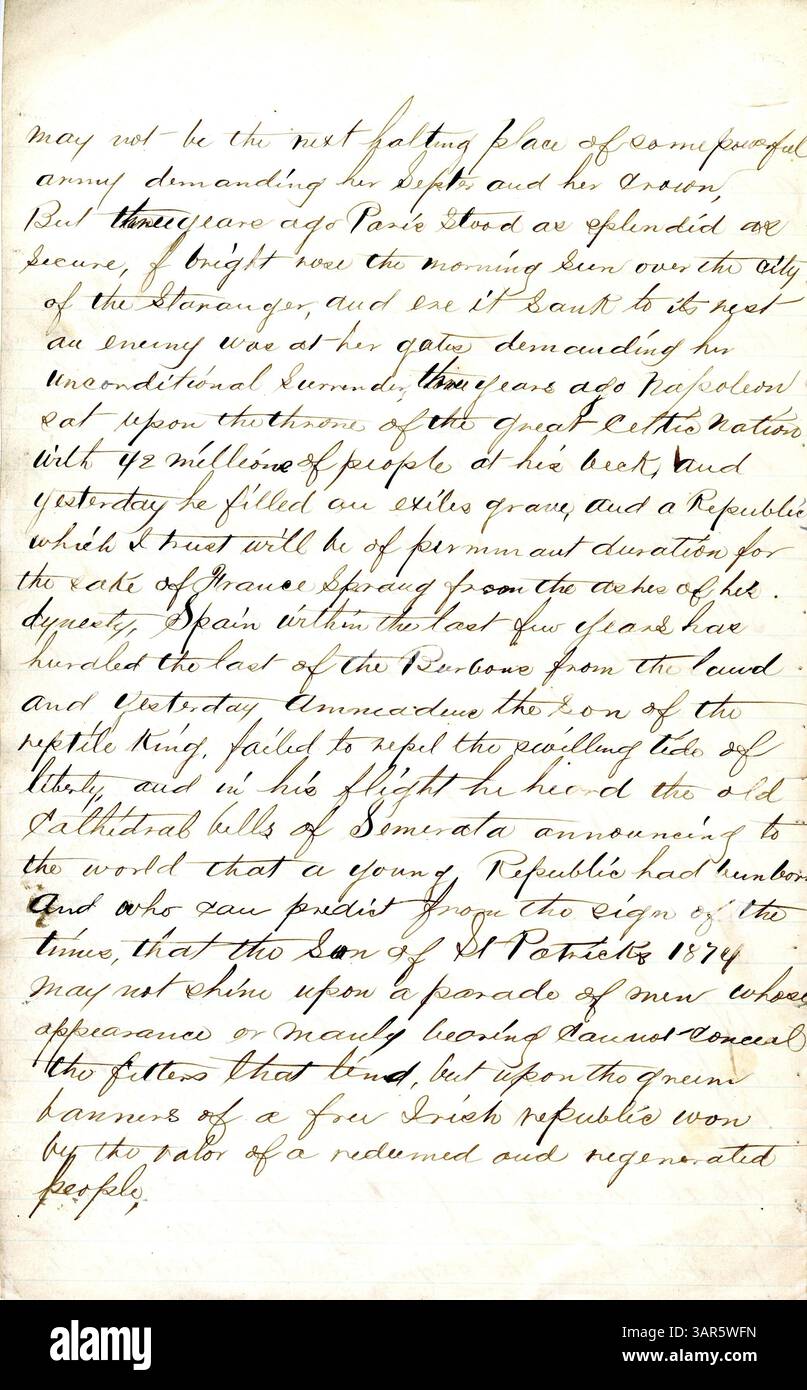 may not be the next halting place of some powerful
army demanding her Septer and her Crown,
But three years ago Paris Stood as splendid as
Secure, bright rose the morning Sun over the city
of the Stranuger, and ere it Sank to its rest
an enemy was at her gates demanding her
unconditional Surrender, three years ago Napoleon
sat upon the throne of the great Celtic Nation
with 42 millions of people at his beck, and
yesterday he filled an exiles grave, and a Republic
which I trust will be of permmant duration for
the sake of France Sprang from the ashes of his
dynesty, Spain within the last few years has
hurdled the last of the Burbons from the land
and yesterday Ammeadeus the Son of the
reptile King, failed to repel the swilling tide of
liberty, and in his flight he heard the old
Cathidral bells of Semerata announcing to
the world that a young Republic had bun born
And who can predict from the sign of the
times, that the Son of St Patricks 1874
may not shine upon a parade of men whose
appearance or manly bearing Cannot Conceal
the fitters that bind, but upon the green
banners of a free Irish republic won
by the valor of a redeemed and regenerated
people,
alamy
Image ID: 3AR5WFN
www.alamy.com